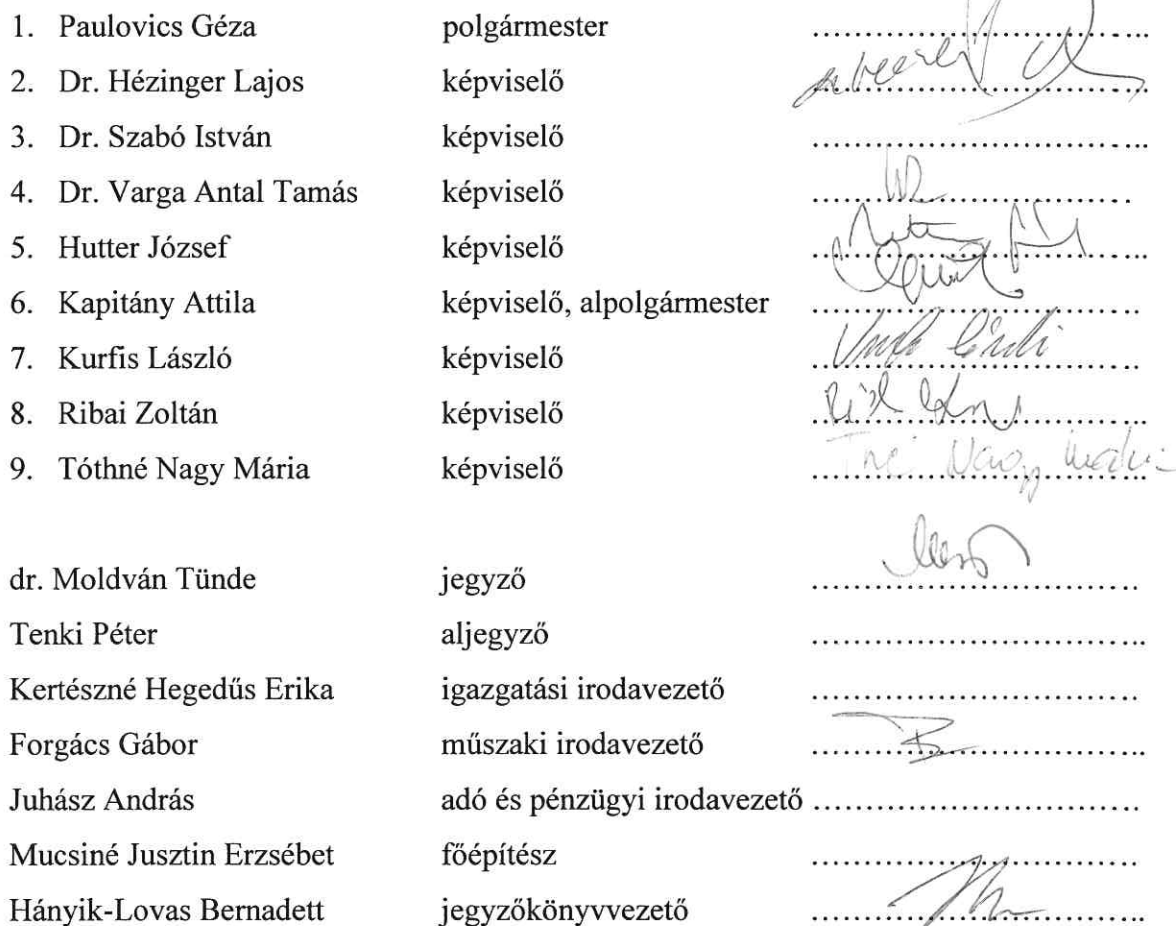 1. Paulovics Géza polgármester ..............................
2. Dr. Hézinger Lajos képviselő ..............................
3. Dr. Szabó István képviselő ..............................
4. Dr. Varga Antal Tamás képviselő ..............................
5. Hutter József képviselő ..............................
6. Kapitány Attila képviselő, alpolgármester ..............................
7. Kurfis László képviselő ..............................
8. Ribai Zoltán képviselő ..............................
9. Tóthné Nagy Mária képviselő .............................. Tné Nagy Mária
dr. Moldván Tünde jegyző ..............................
Tenki Péter aljegyző ..............................
Kertészné Hegedűs Erika igazgatási irodavezető ..............................
Forgács Gábor műszaki irodavezető ..............................
Juhász András adó és pénzügyi irodavezető ..............................
Mucsiné Jusztin Erzsébet főépítész ..............................
Hányik-Lovas Bernadett jegyzőkönyvvezető ..............................